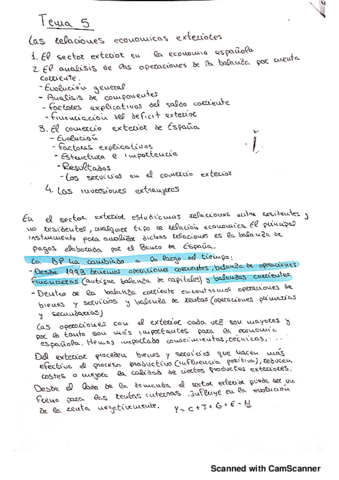 Tema 5
Las relaciones economicas exteriores
1. El sector exterior en la economia española
2. El analisis de las operaciones de la balanza por cuenta
corriente.
- Evolución general
- Analisis de componentes
- Factores explicativos del saldo corriente
- Financiación del deficit exterior
3. El comercio exterior de España
- Evolución
- Factores explicativos
- Estructura e importancia
- Resultados
- Los servicios en el comercio exterior
4. Las inversiones extranjeras
En el sector exterior estudiamos relaciones entre residentes y
no residentes, cualquier tipo de relación economica. El principal
instrumento para analizar dichas relaciones es la balanza de
pagos elaborada por el Banco de España.
La BP ha cambiado a lo largo del tiempo:
- Desde 1993 tenemos operaciones corrientes, balanza de operaciones
financieras (antigua balanza de capitales) y balanzas corrientes.
- Dentro de la balanza corriente encontramos operaciones de
bienes y servicios y balanza de rentas (operaciones primarias
y secundarias)
Las operaciones con el exterior cada vez son mayores y
por lo tanto son más importantes para la economia
española. Hemos importado conocimientos, tecnicas, ...
Del exterior proceden bienes y servicios que hacen más
efectivo el proceso productivo (influencia positiva), reducen
costes o mejora la calidad de ciertos productos exteriores.
Desde el lado de la demanda el sector exterior puede ser un
freno para las rentas internas. Influye en la evolución
de la renta negativamente. Y = C + I + G + E - M
Scanned with CamScanner